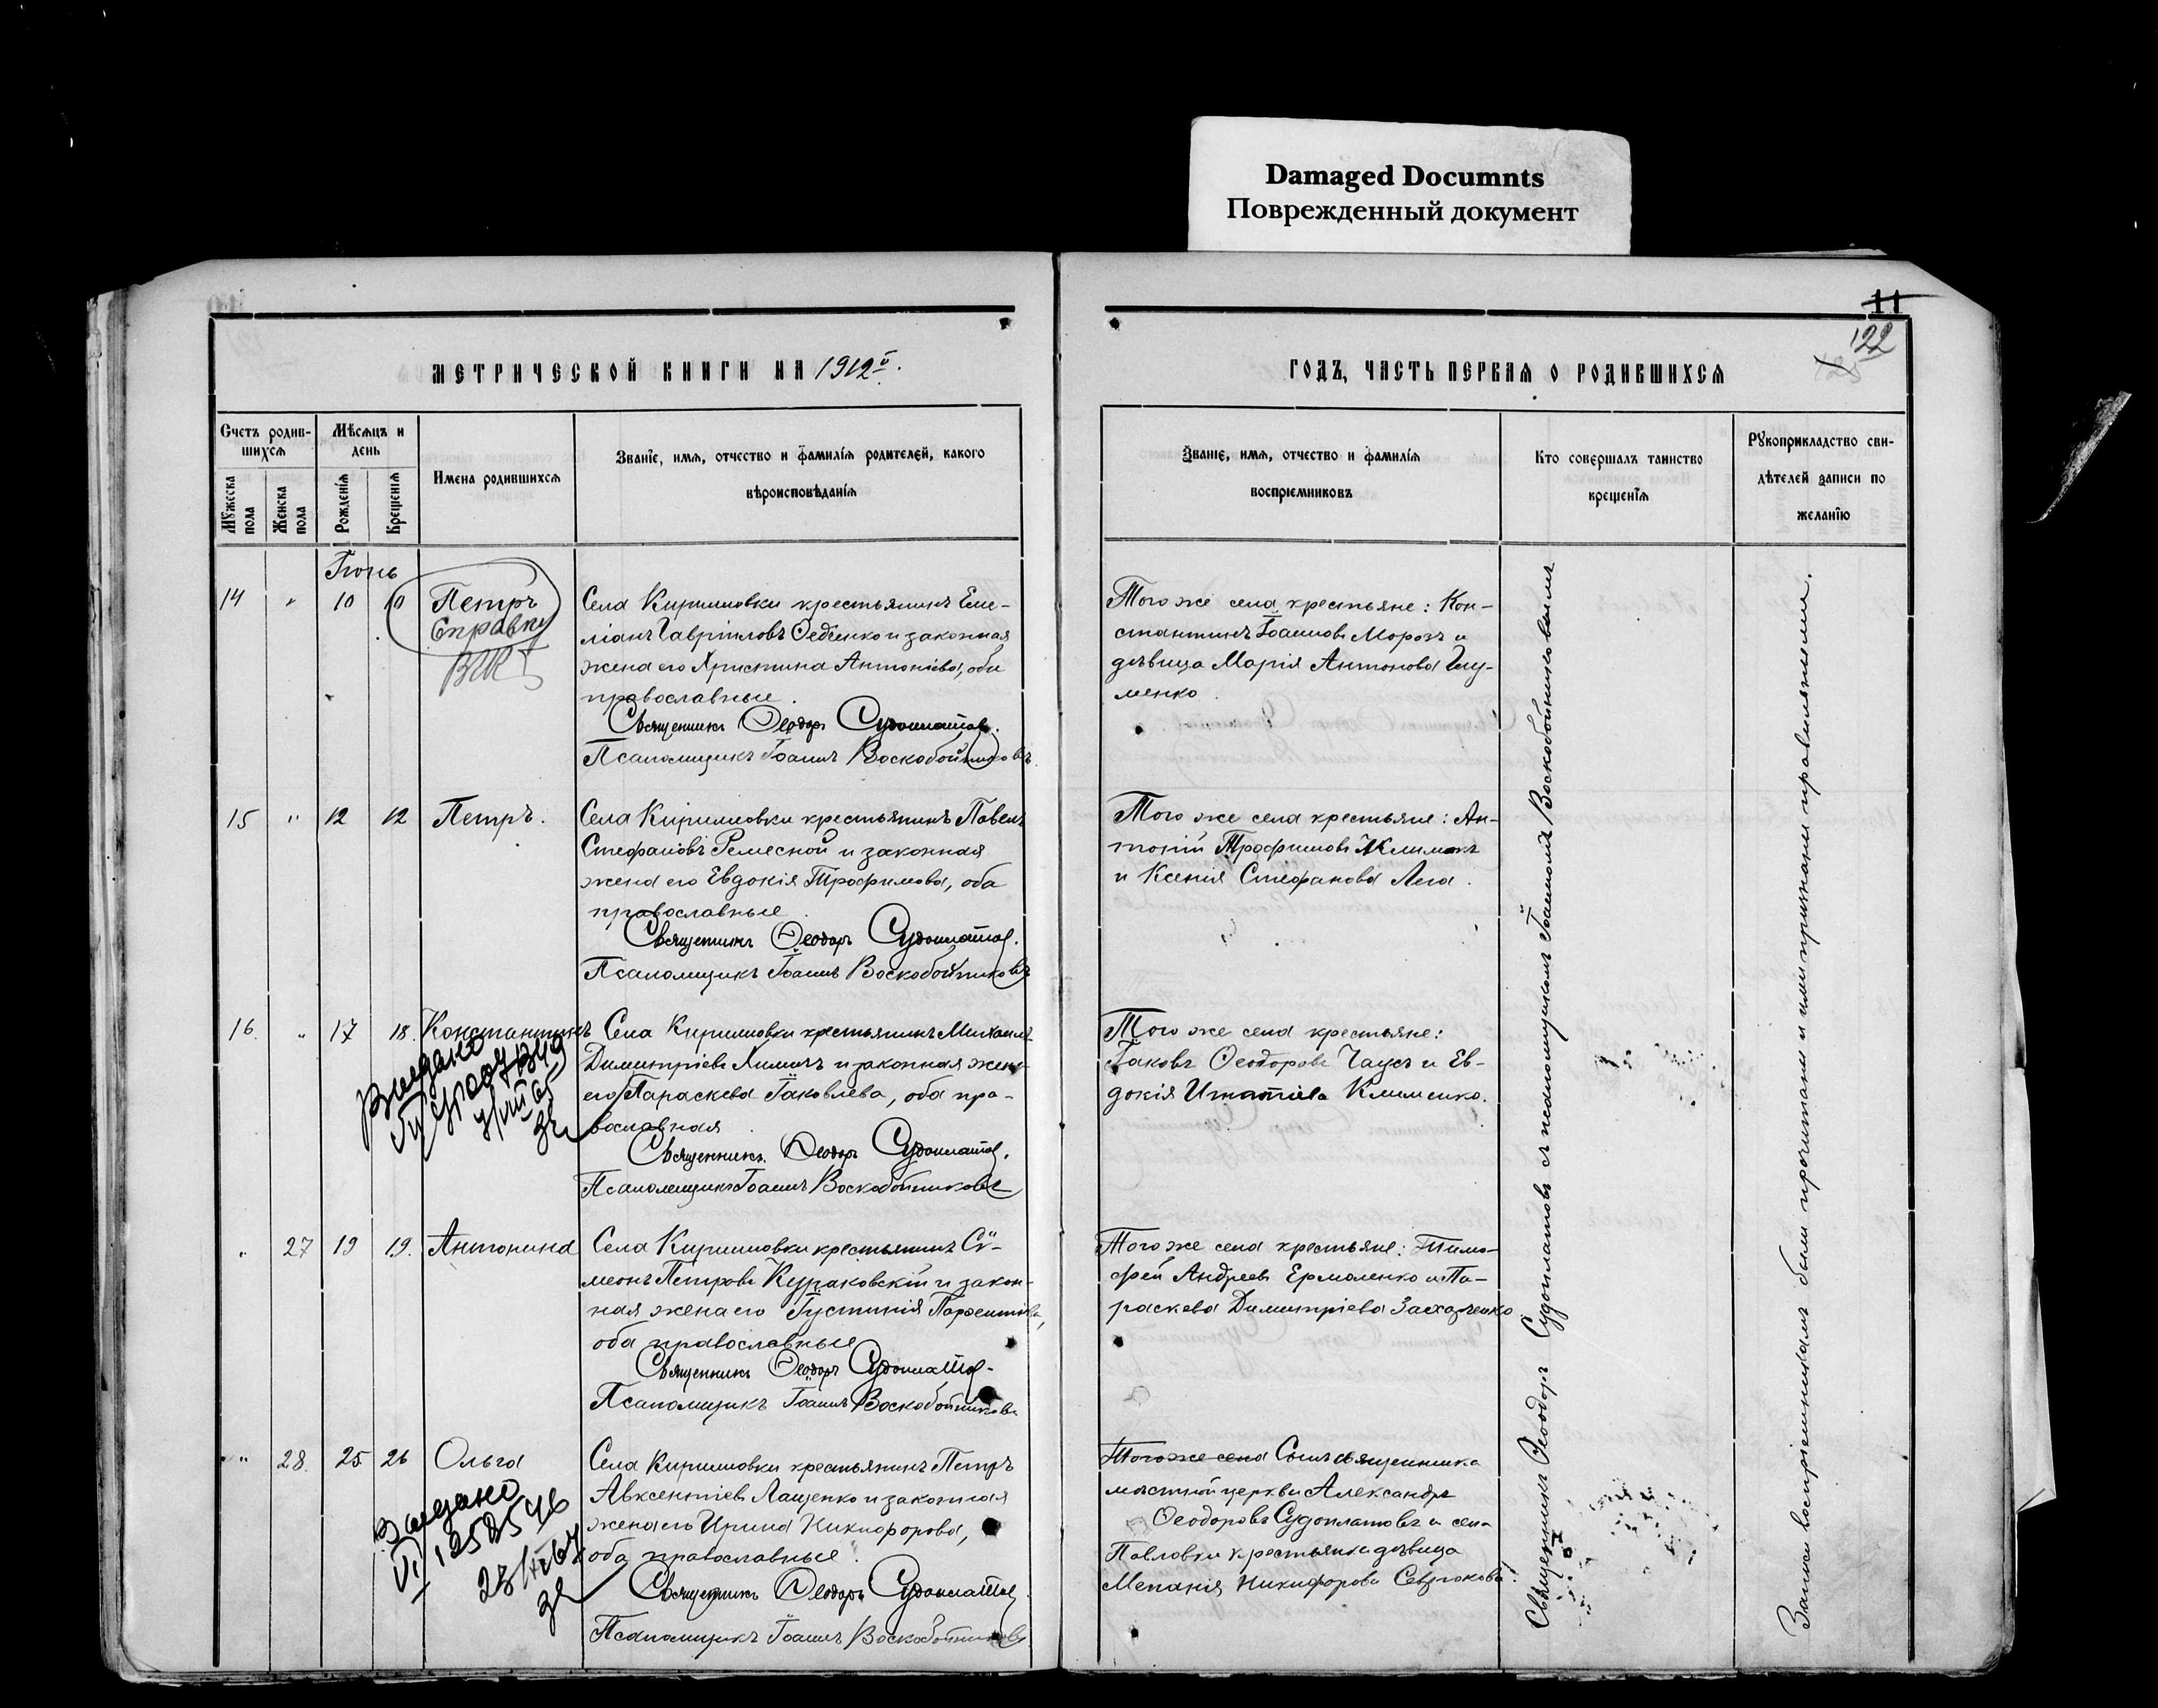 Damaged Documnts
Поврежденный документ
11
122
МЕТРИЧЕСКОЙ КНИГИ НА 1912й.
ГОДЪ, ЧАСТЬ ПЕРВАЯ О РОДИВШИХСЯ
Счетъ родив-
шихся
Мужеска пола
Женска пола
Мѣсяцъ и
день
Рожденія
Крещенія
Имена родившихся
Званіе, имя, отчество и фамилія родителей, какого
вѣроисповѣданія
Званіе, имя, отчество и фамилія
воспріемниковъ
Кто совершалъ таинство
крещенія
Рукоприкладство сви-
дѣтелей записи по
желанію
Іюнь
14 " 10 10 Петръ
Справку
Села Кирилловки крестьянинъ Еме-
ліанъ Гавріиловъ Федченко и законная
жена его Христина Антоніева, оба
православные.
Священникъ Ѳеодоръ Судоплатовъ.
Псаломщикъ Іоаннъ Воскобойниковъ.
Того же села крестьяне: Кон-
стантинъ Іоанновъ Морозъ и
дѣвица Марія Антонова
менко.
15 " 12 12 Петръ.
Села Кирилловки крестьянинъ Павелъ
Стефановъ Ремесной и законная
жена его Евдокія Трофимова, оба
православные
Священникъ Ѳеодоръ Судоплатовъ.
Псаломщикъ Іоаннъ Воскобойниковъ
Того же села крестьяне: Ан-
тоній Трофимовъ
и Ксенія Стефанова Лега.
16. " 17 18. Константинъ
Выдано
Села Кирилловки крестьянинъ Михаилъ
Димитріевъ Химичъ и законная жена
его Параскева Іаковлева, оба пра-
вославная.
Священникъ Ѳеодоръ Судоплатовъ.
Псаломщикъ Іоаннъ Воскобойниковъ
Того же села крестьяне:
Іаковъ Ѳеодоровъ Чаусъ и Ев-
докія Игнатіева Клименко.
" 27 19 19. Антонина
Села Кирилловки крестьянинъ Сѵ-
меонъ Петровъ Кураковскій и закон-
ная жена его Іустинія Парѳентіева,
оба православные
Священникъ Ѳеодоръ Судоплатов.
Псаломщикъ Іоаннъ Воскобойниковъ
Того же села крестьяне: Тимо-
фей Андреевъ Ермоленко и Па-
раскева Димитріева Захарченко
" 28. 25 26 Ольга
Выдано
Села Кирилловки крестьянинъ Петръ
Авксентіевъ Лащенко и законная
жена его Ирина Никифорова,
оба православные.
Священникъ Ѳеодоръ Судоплатов.
Псаломщикъ Іоаннъ Воскобойниковъ
Того же села Сынъ священника
мѣстной церкви Александръ
Ѳеодоровъ Судоплатовъ и села
Павловки крестьянка дѣвица
Меланія Никифорова
Священникъ Ѳеодоръ Судоплатовъ съ псаломщикомъ Іоанномъ Воскобойниковымъ
Записи воспріемникамъ были прочитаны и ими признаны правильными.